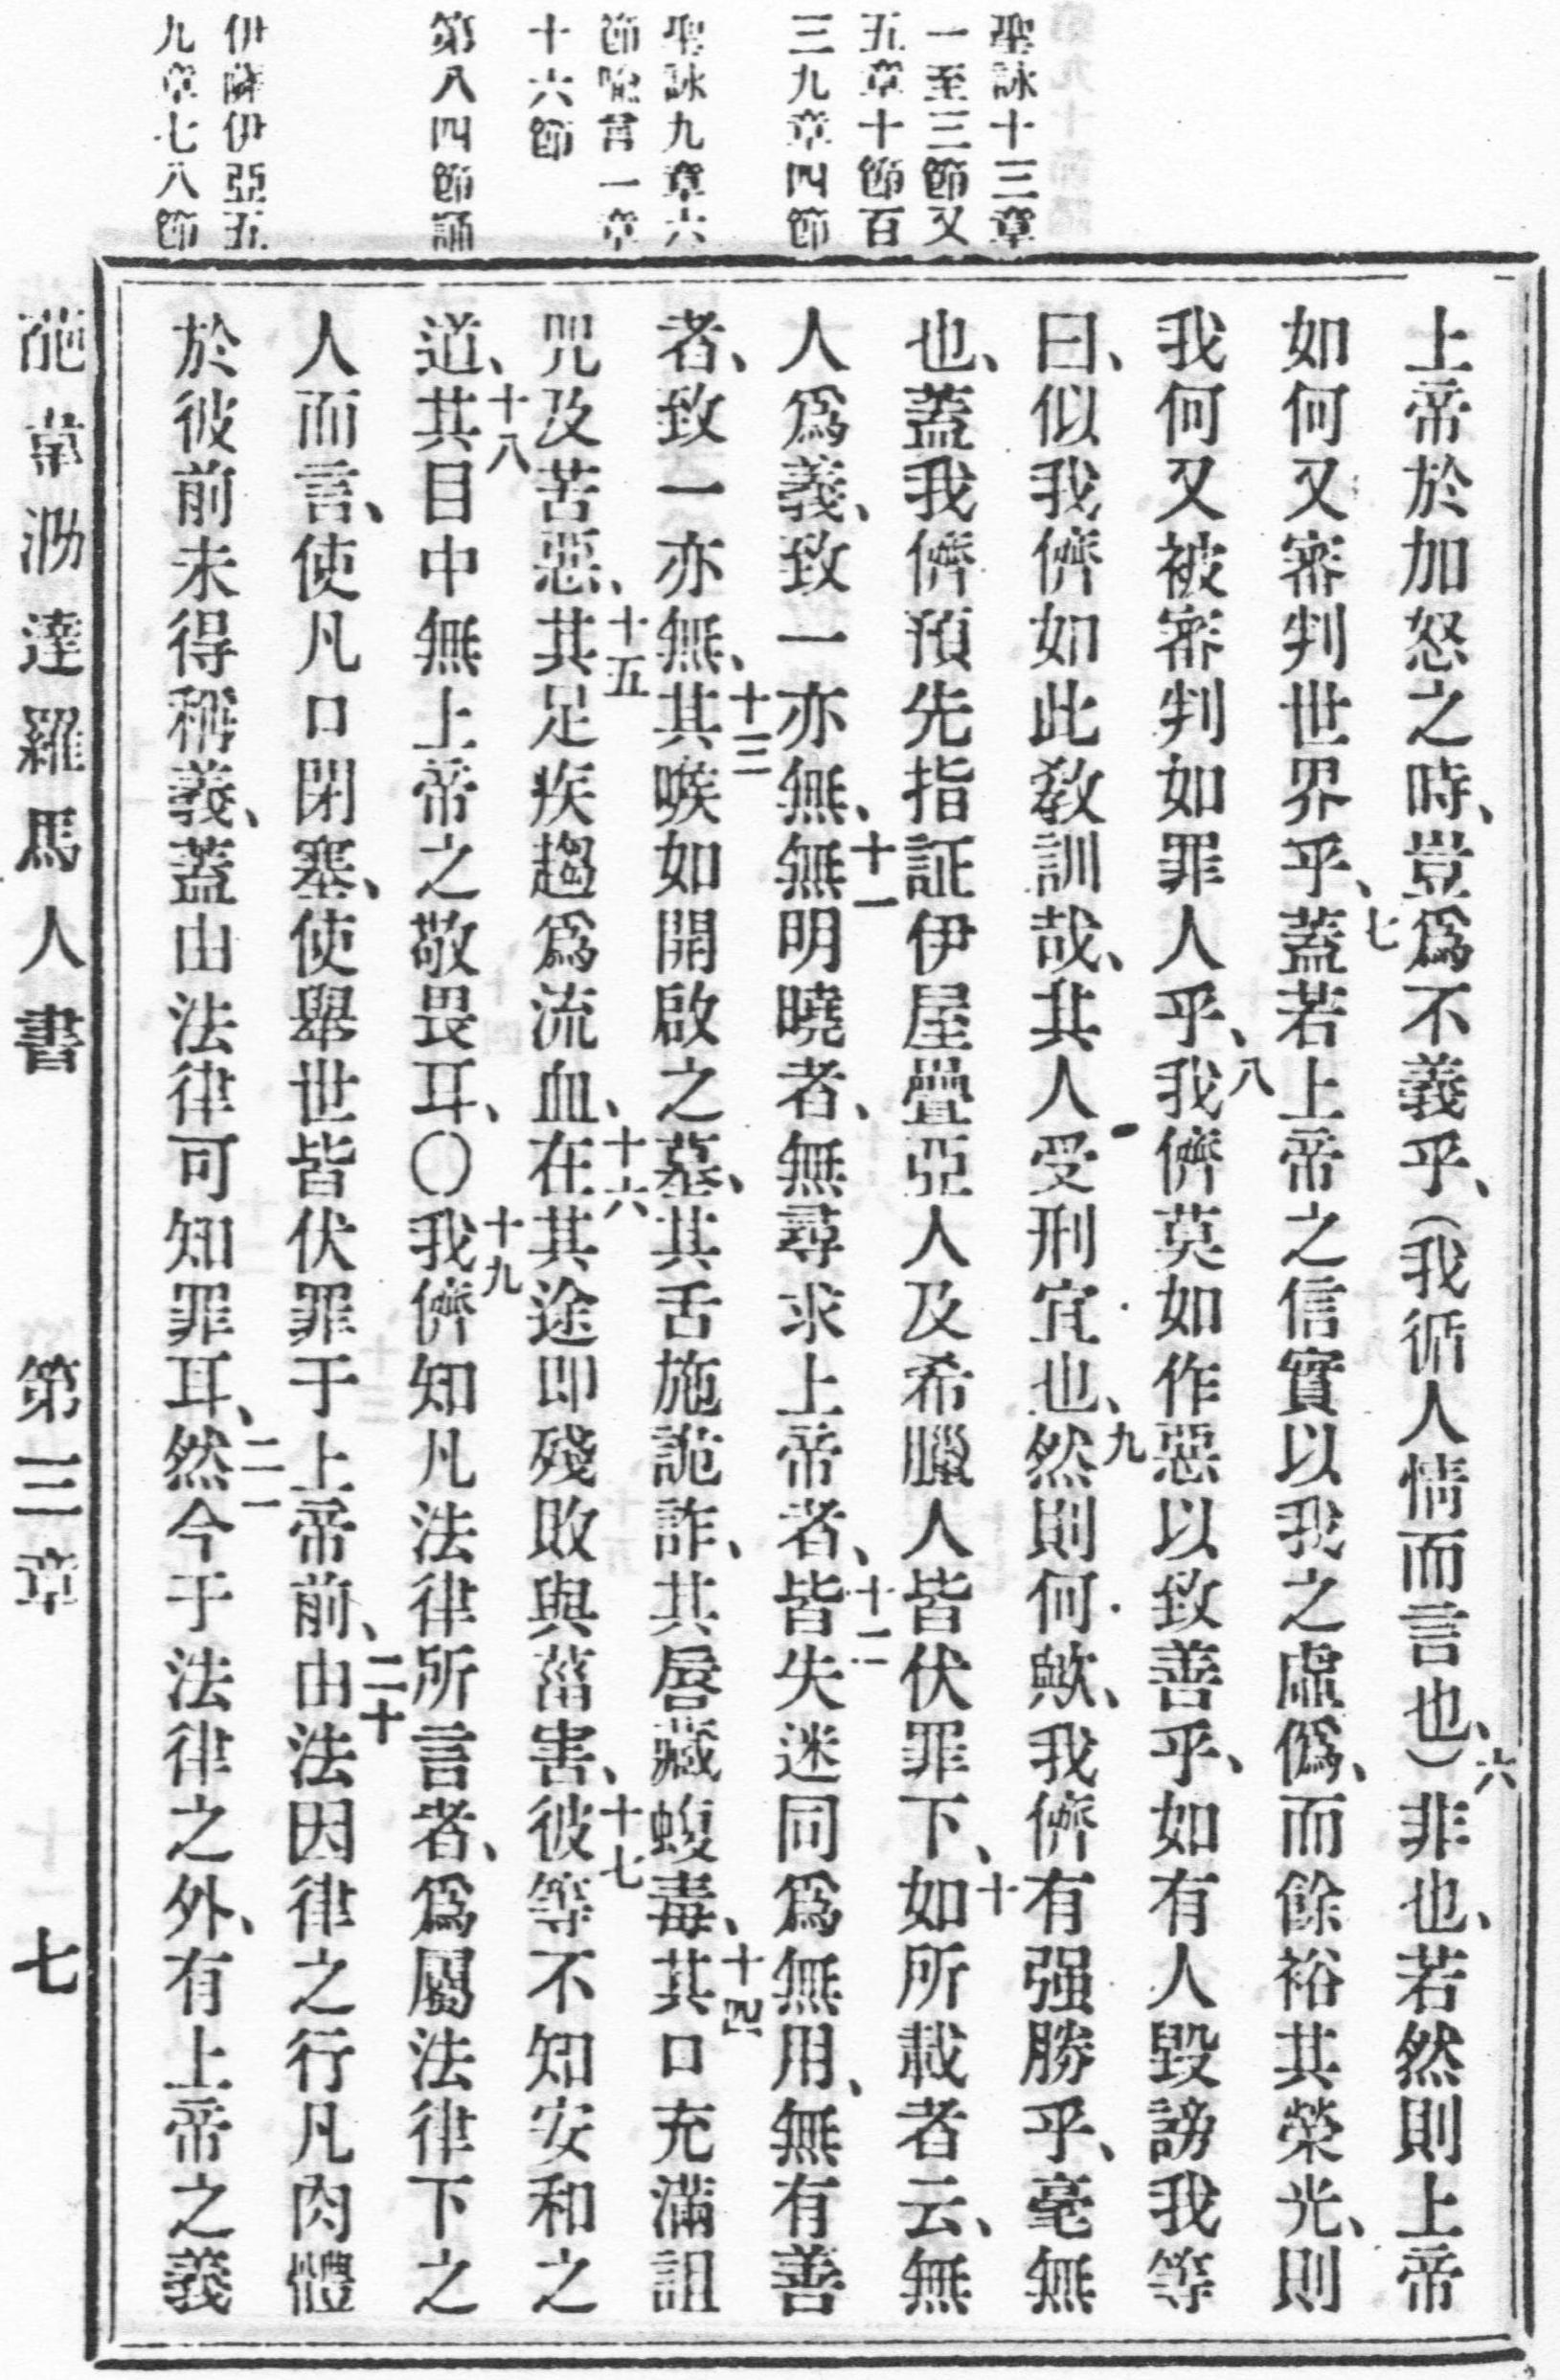 聖詠十三章
一至三節又
五章十節百
三九章四節
聖詠九章六
節喩言一章
十六節
第八四節誦
伊薩伊亞五
九章七八節
上帝於加怒之時、豈爲不義乎、(我循人情而言也、)六非也、若然則上帝
如何又審判世界乎、七蓋若上帝之信實以我之虛僞、而餘裕其榮光、則
我何又被審判如罪人乎、八我儕莫如作惡以致善乎、如有人毀謗我等
曰、似我儕如此敎訓哉、其人受刑宜也、九然則何歟、我儕有强勝乎、毫無
也、蓋我儕預先指証伊屋疊亞人及希臘人皆伏罪下、十如所載者云、無
人爲義、致一亦無、十一無明曉者、無尋求上帝者、十二皆失迷同爲無用、無有善
者、致一亦無、十三其喉如開啟之墓、其舌施詭詐、其唇藏蝮毒、十四其口充滿詛
咒及苦惡、十五其足疾趨爲流血、十六在其途即殘敗與菑害、十七彼等不知安和之
道、十八其目中無上帝之敬畏耳、〇十九我儕知凡法律所言者、爲屬法律下之
人而言、使凡口閉塞、使舉世皆伏罪于上帝前、二十由法因律之行凡肉體
於彼前未得稱義、蓋由法律可知罪耳、二一然今于法律之外、有上帝之義
葩韋泐達羅馬人書 第三章 七